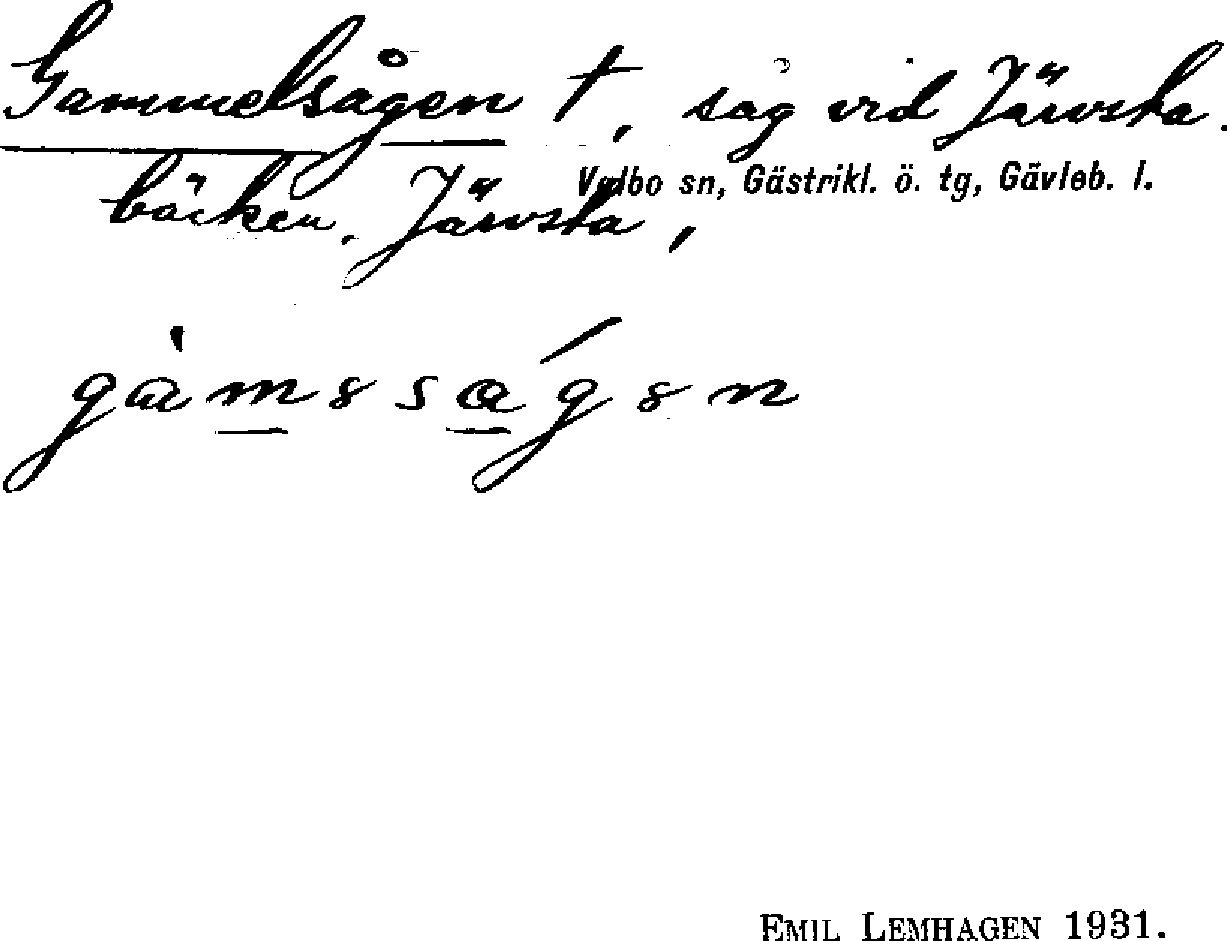 Gammelsågen †, såg vid Järvsta.
Valbo sn, Gästrikl. ö. tg, Gävleb. l.
bäcken. Järvsta,
EMIL LEMHAGEN 1931.